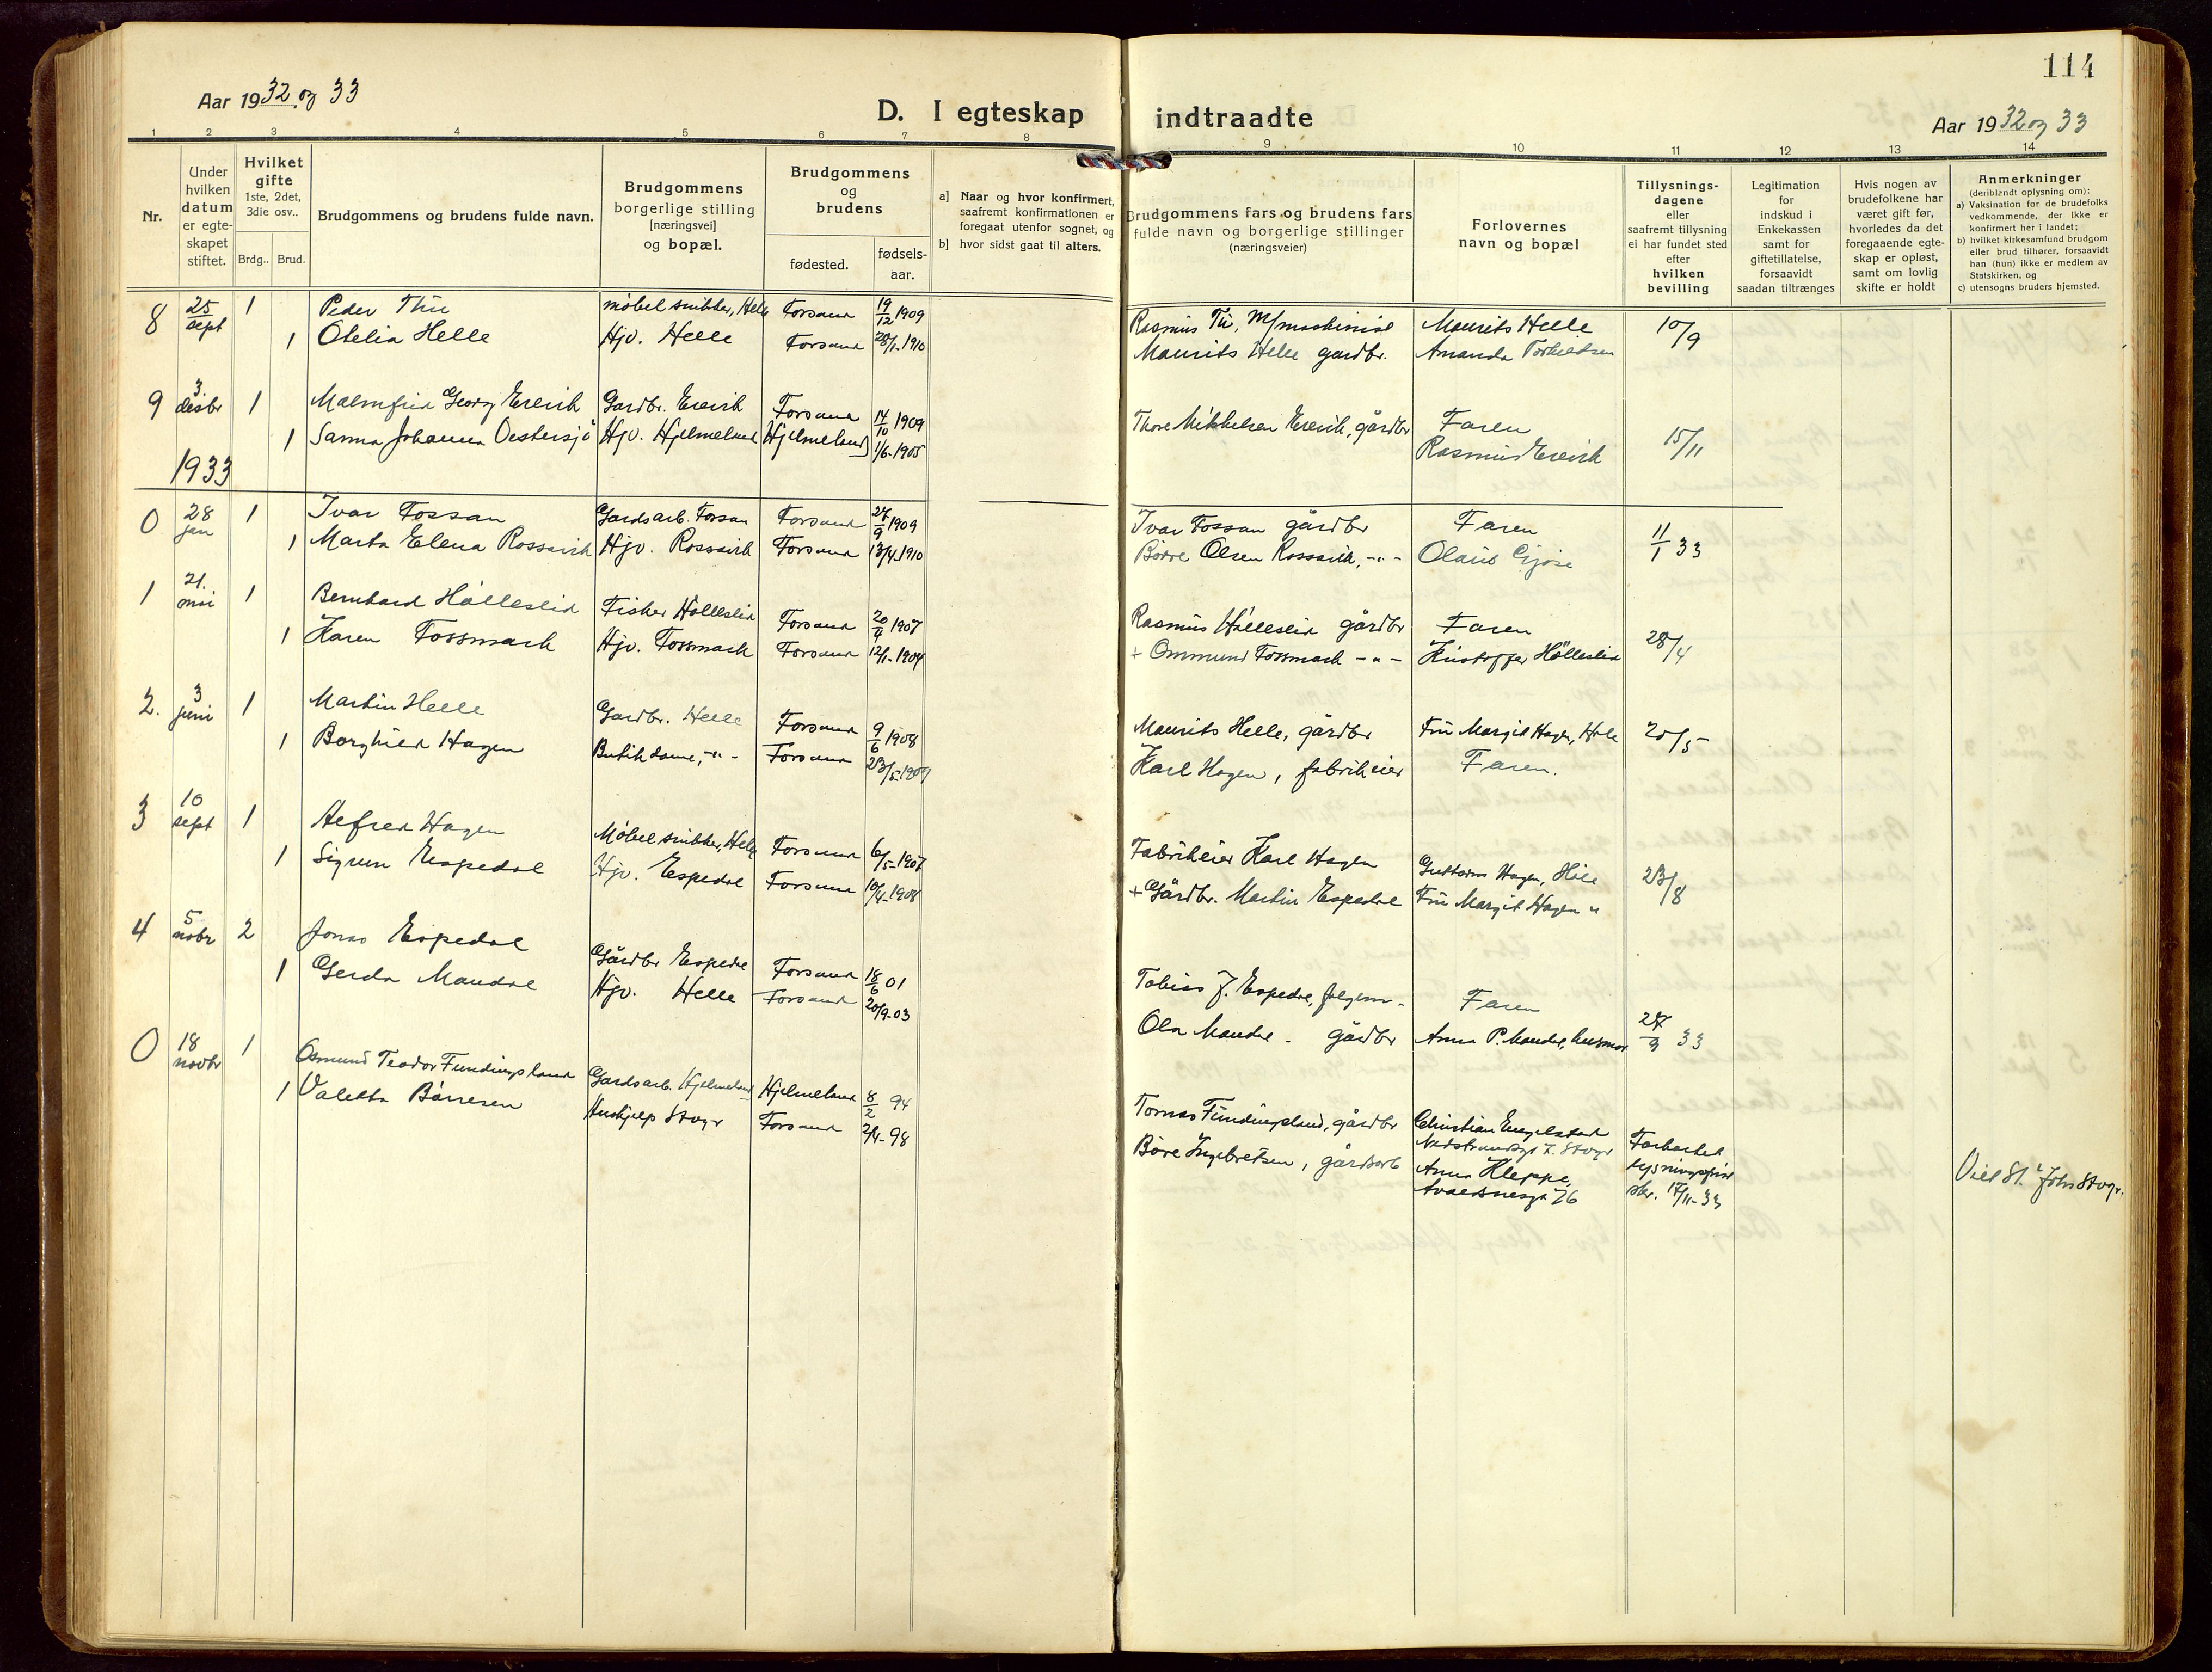 114
Aar 1932 og 33
D. I egteskap indtraadte
Aar 1932 og 33
1 2 3 4 5 6 7 8 9 10 11 12 13 14
Nr.
Under hvilken datum er egte-skapet stiftet.
Hvilket gifte
1ste, 2det, 3die osv..
Brdg.. Brud.
Brudgommens og brudens fulde navn.
Brudgommens borgerlige stilling [næringsvei] og bopæl.
Brudgommens og brudens
fødested.
fødsels-aar.
a] Naar og hvor konfirmert, saafremt konfirmationen er foregaat utenfor sognet, og
b] hvor sidst gaat til alters.
Brudgommens fars og brudens fars fulde navn og borgerlige stillinger (næringsveier)
Forlovernes navn og bopæl
Tillysnings-dagene eller saafremt tillysning ei har fundet sted efter hvilken bevilling
Legitimation for indskud i Enkekassen samt for giftetillatelse, forsaavidt saadan tiltrænges
Hvis nogen av brudefolkene har været gift før, hvorledes da det foregaaende egte-skap er opløst, samt om lovlig skifte er holdt
Anmerkninger
(deriblandt oplysning om):
a) Vaksination for de brudefolks vedkommende, der ikke er konfirmert her i landet;
b) hvilket kirkesamfund brudgom eller brud tilhører, forsaavidt han (hun) ikke er medlem av Statskirken, og
c) utensogns bruders hjemsted.
8 25/sept 1 Peder Thu møbelsnikker, Helle Forsand 19/12 1909 Rasmus Tu, M/maskinist Maurits Helle 10/9
1 Otelia Helle Hjv. Helle Forsand 28/1-1910 Maurits Helle gardbr. Amanda Torkildsen
9 3 desbr 1 Malmfrid Georg Erevik Gardbr. Erevik Forsand 14/10 1909 Thore Mikkelsen Erevik, gårdbr Faren 15/11
1 Sanna Johanna Vestersjø Hjv. Hjelmeland Hjelmeland 1/6-1905 Rasmus Erevik
1933
0 28 jan 1 Ivar Fossan Gardsarb. Fossan Forsand 27/9 1909 Ivar Fossan gårdbr Faren 11/1 33
1 Marta Elena Rossavik Hjv. Rossavik Forsand 13/4 1910 Børre Olsen Rossavik, -"- Olaus Gjøse
1 21. mai 1 Bernhard Hålleslid Fisker Hålleslid Forsand 20/4 1907 Rasmus Hålleslid gårdbr Faren 28/4
1 Karen Fossmark Hjv. Fossmark Forsand 12/1-1904 + Ommund Fossmark -"- Kristoffer Hålleslid
2. 3 juni 1 Martin Helle Gardbr. Helle Forsand 9/6 1908 Maurits Helle, gårdbr Fru Margit Hagen, Helle 20/5
1 Borghild Hagen Butikdame, -"- Forsand 23/5-1907 Karl Hagen, fabrikeier Faren.
3 10 sept 1 Alfred Hagen Møbelsnikker, Helle Forsand 6/5-1907 Fabrikeier Karl Hagen Guttorm Hagen, Helle 23/8
1 Sigrun Espedal Hjv. Espedal Forsand 10/4-1908 + Gårdbr. Martin Espedal Fru Margit Hagen "
4 5 nobr 2 Jonas Espedal Gårdbr Espedal Forsand 18/6 01 Tobias J. Espedal, Faren 27/9 33
1 Gerda Maudal Hjv. Helle Forsand 20/9-03 Ola Maudal. gårdbr Anna P. Maudal, husmor
0 18 novbr 1 Osmund Teodor Fundingsland Gardsarb. Hjelmeland Hjelmeland 8/2 94 Tomas Fundingsland, gårdbr Christian Engelstad
Nedstrandsgt 7. Stvgr Forkortet
1 Valetta Børresen Hushjelp Stvgr Forsand 2/4-98 Børe Ingebretsen, gårdsarb Anna Kleppe, lysningsfrist
Avaldsnesgt 76 skr. 17/11-33
Viet St. Johs Stvgr.